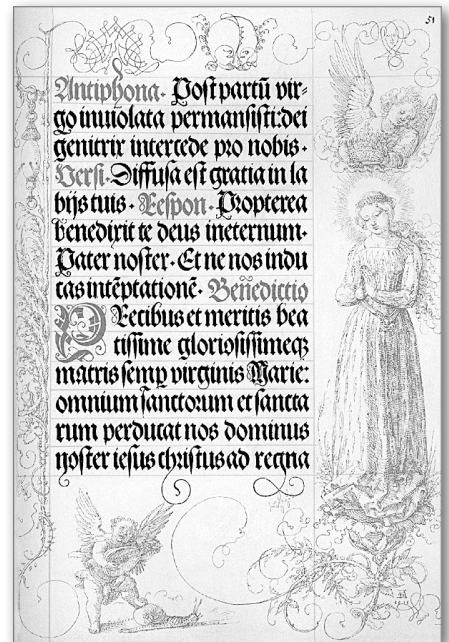 51
Antiphona. Post partū vir-
go inuiolata permansisti:dei
genitrix intercede pro nobis.
Versi. Diffusa est gratia in la
bijs tuis. Respon. Propterea
benedixit te deus ineternum.
Pater noster. Et ne nos indu
cas intēptationē. Benedictio
PRecibus et meritis bea
tissime gloriosissimeqꝫ
matris semp virginis Marie:
omnium sanctorum et sancta
rum perducat nos dominus
noster iesus christus ad regna